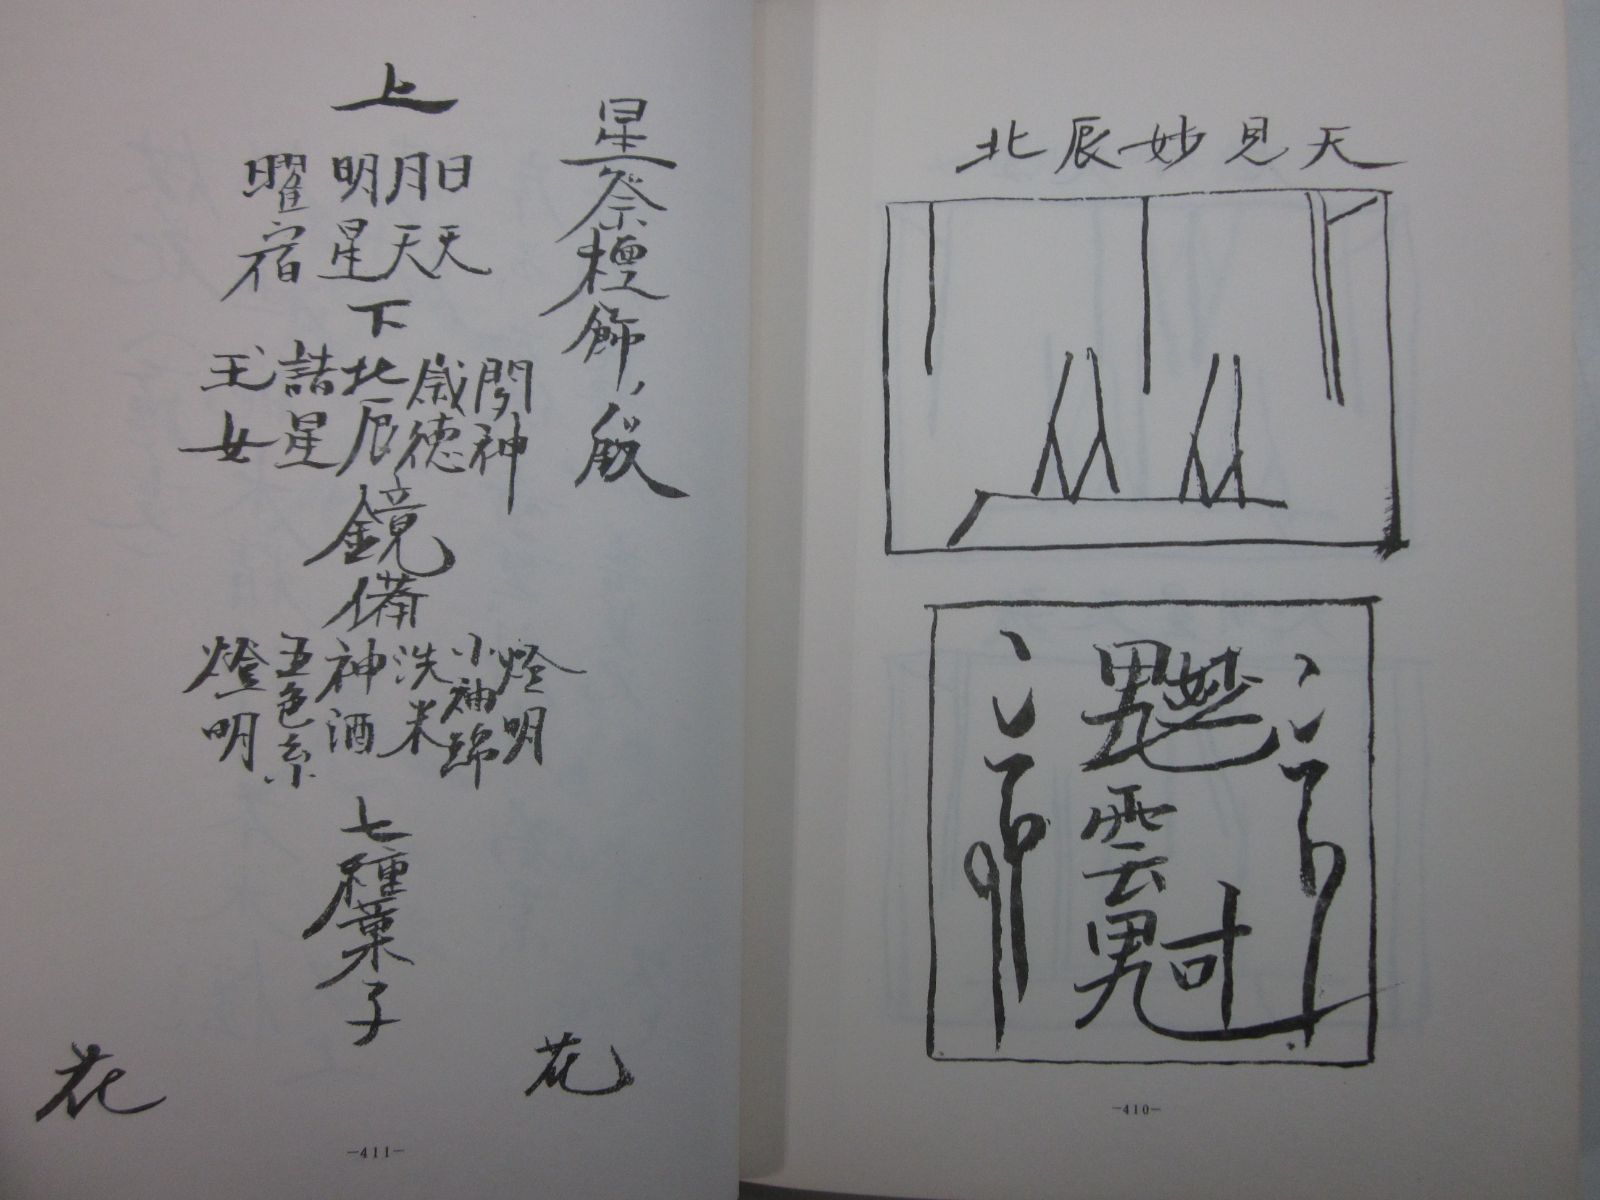 北辰妙見天
雲
-410-
星祭檀飾ノ段
上
日天
月天
明星
曜宿
下
閇神
歳徳
北辰
諸星
玉女
鏡
備
燈明
小袖綿
洗米
神酒
五色糸
燈明
七種菓子
花
花
-411-